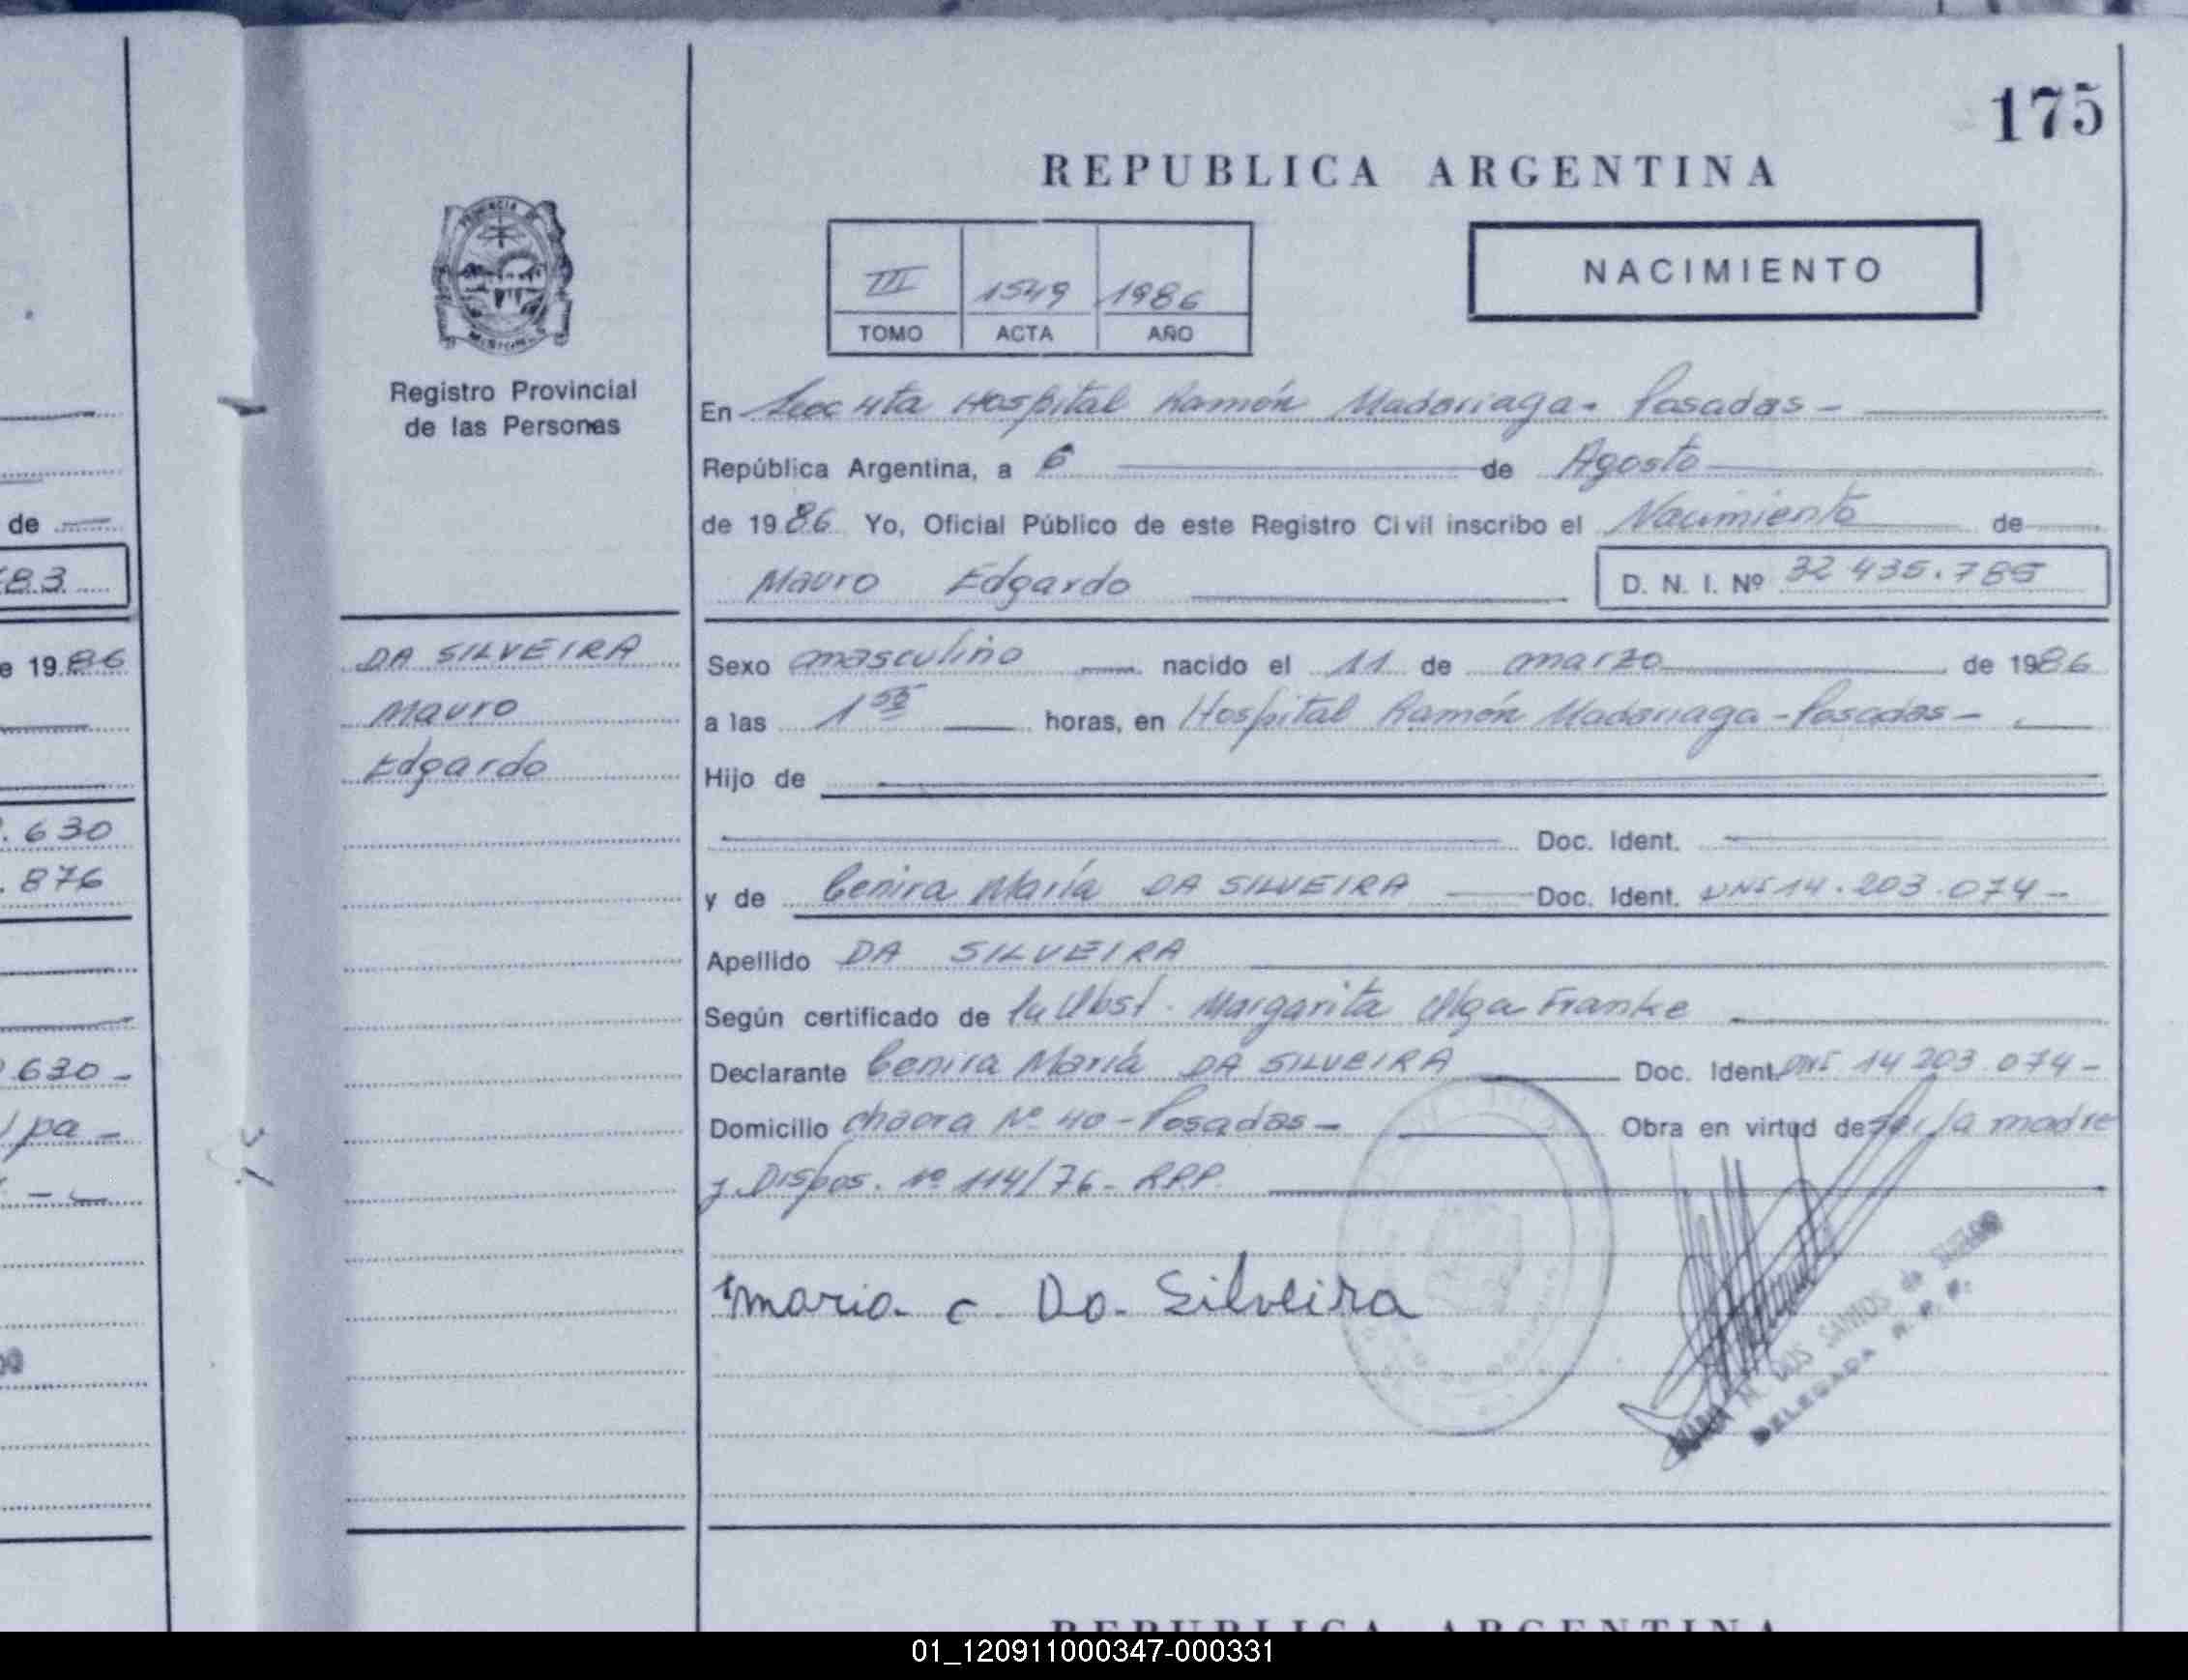 175
REPUBLICA ARGENTINA
III 1549 1986
TOMO ACTA AÑO
NACIMIENTO
Registro Provincial
de las Personas
En Secc 4ta Hospital Ramón Madariaga - Posadas -
República Argentina, a 6 de Agosto
de 1986 Yo, Oficial Público de este Registro Civil inscribo el Nacimiento de
Mauro Edgardo D. N. I. Nº 32 435.785
DA SILVEIRA
Mauro
Edgardo
Sexo masculino nacido el 11 de marzo de 1986
a las 1 55 horas, en Hospital Ramón Madariaga - Posadas -
Hijo de
Doc. Ident.
y de Cenira María DA SILVEIRA Doc. Ident. DNI 14.203.074 -
Apellido DA SILVEIRA
Según certificado de la Obst. Margarita Olga Franke
Declarante Cenira María DA SILVEIRA Doc. Ident. DNI 14 203.074 -
Domicilio chacra Nº 40 - Posadas - Obra en virtud de ser la madre
y Dispos. Nº 114/76 - RPP.
maria c Da Silveira
MARIA N. DOS SANTOS de
DELEGADA R. P. P.
de
83
e 1986
.630
.876
630 -
pa -
REPUBLICA ARGENTINA
01_120911000347-000331